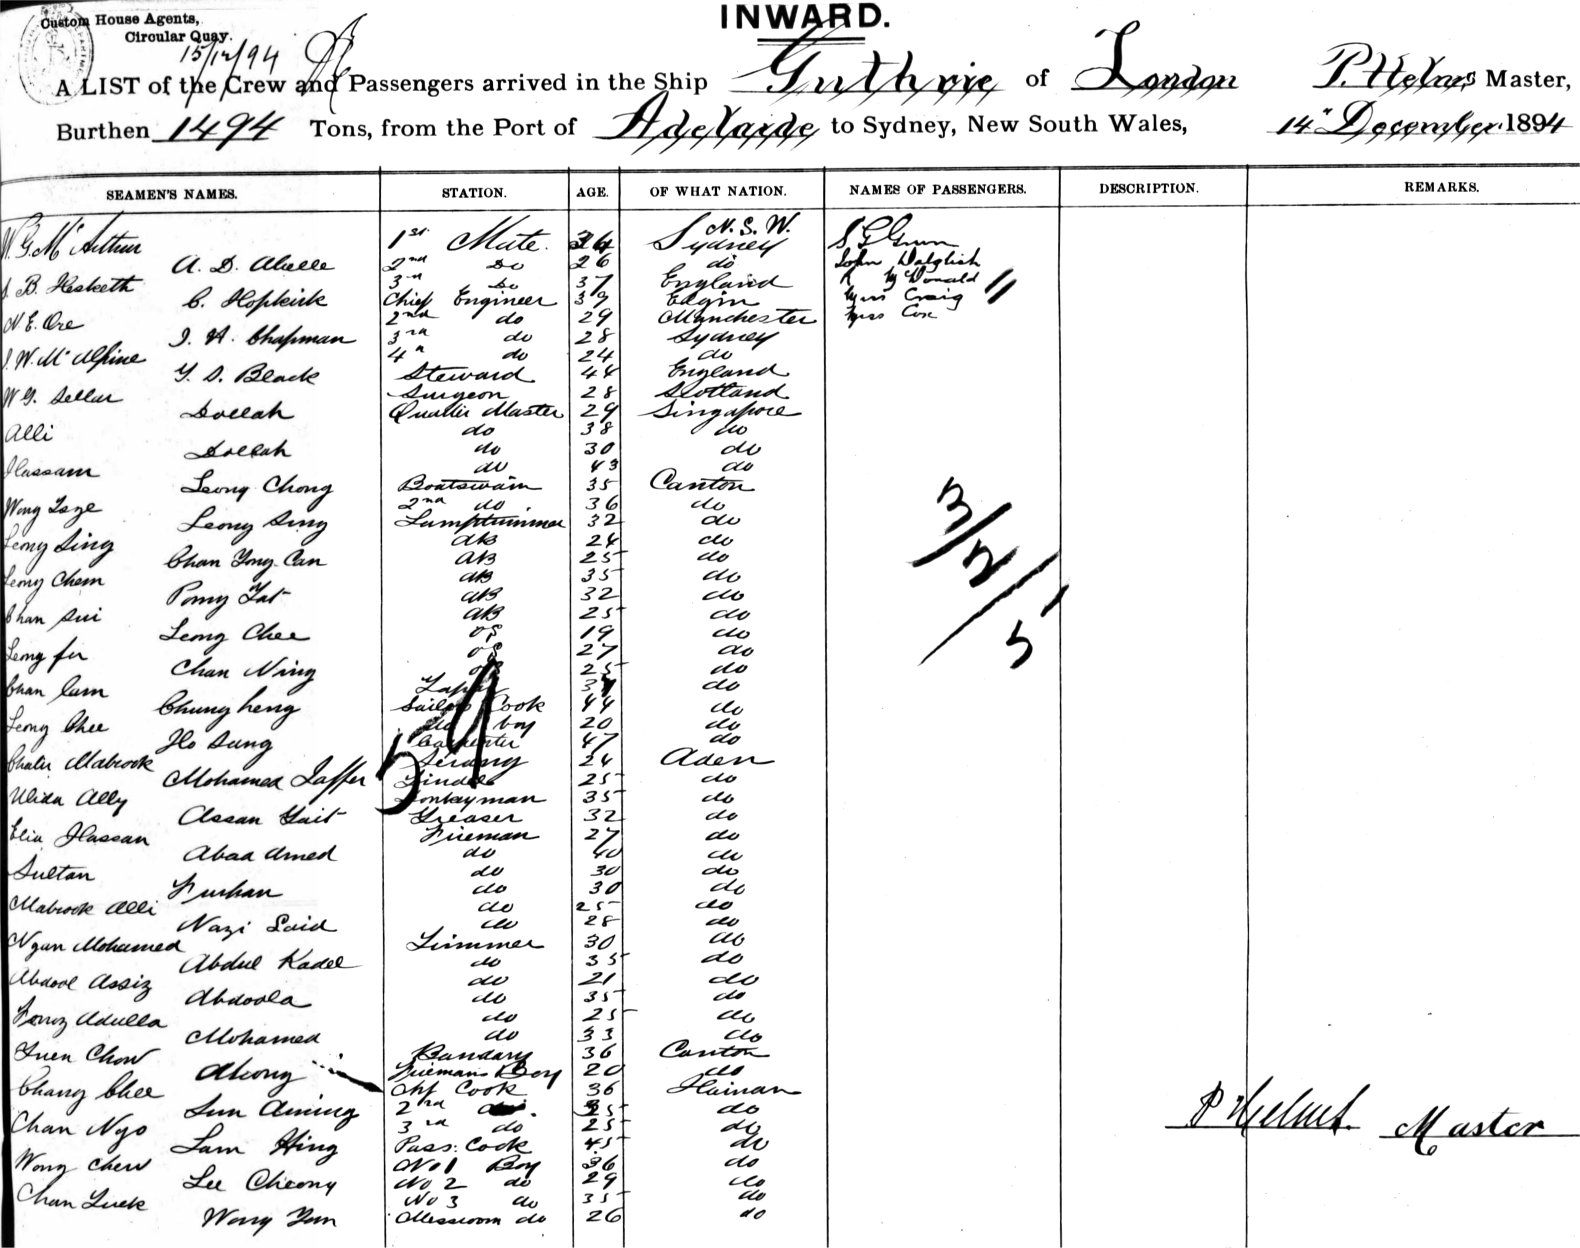 INWARD.
Custom House Agents,
Circular Quay.
15/12/94
A LIST of the Crew and Passengers arrived in the Ship Guthrie of London P. Helms Master,
Burthen 1494 Tons, from the Port of Adelaide to Sydney, New South Wales, 14" December 1894
SEAMEN'S NAMES. STATION. AGE. OF WHAT NATION. NAMES OF PASSENGERS. DESCRIPTION. REMARKS.
W. G. McArthur 1st Mate. 34 Sydney N. S. W. S G Gunn
A. D. Abelle 2nd Do 26 do John Dalglish
B. Hesketh 3rd Do 37 England McDonald
C. Hopkirk Chief Engineer 39 Miss Craig
N E. Ore 2nd do 29 Manchester Miss Cox
J. A. Chapman 3rd do 28 Sydney
J. W. McAlpine 4th do 24 do
Y. S. Black Steward 44 England
W G. Sellar Surgeon 28 Scotland
Dollah Quarter Master 29 Singapore
Alli do 38 do
Dollah do 30 do
Hassam do 43 do
Leong Chong Boatswain 35 Canton
Wong Tsze 2nd do 36 do
Leong Sing Lamptrimmer 32 do
Leong Sing AB 24 do
Chan Yong Can AB 25 do
Leong Chem AB 35 do
Pomy Yat AB 32 do
Chan Sui AB 25 do
Leong Chee OS 19 do
Leong fu OS 27 do
Chan Ning OS 25 do
Chan Cum 37 do
Chung heng Sailors Cook 44 do
Leong Chee do boy 20 do
Ho Sung Carpenter 47 do
Mabrook Serang 24 Aden
Mohamed Jaffer Tindel 25 do
Ally Donkeyman 35 do
Assan Gait Greaser 32 do
Elia Hassan Fireman 27 do
Abaa Amed do 40 do
Sultan do 30 do
Furhan do 30 do
Mabrook Alli do 25 do
Nazi Said do 28 do
Ngan Mohamed Trimmer 30 do
Abdul Kadel do 35 do
Abdool Assiz do 21 do
Abdoola do 35 do
Adulla do 25 do
Mohamed do 33 do
Yuen Chow Bandary 36 Canton
Akong Firemans Boy 20 do
Chang Chee Chf Cook 36 Hainan
Sun Aming 2nd do. 25 do
Chan Ngo 3rd do 25 do
Lam Hing Pass. Cook 45 do
Wong Chew No 1 Boy 36 do
Lee Cheong No 2 do 29 do
Chan Luek No 3 do 35 do
Wong Yam Messroom do 26 do
59
3/2/5
P Helms. Master